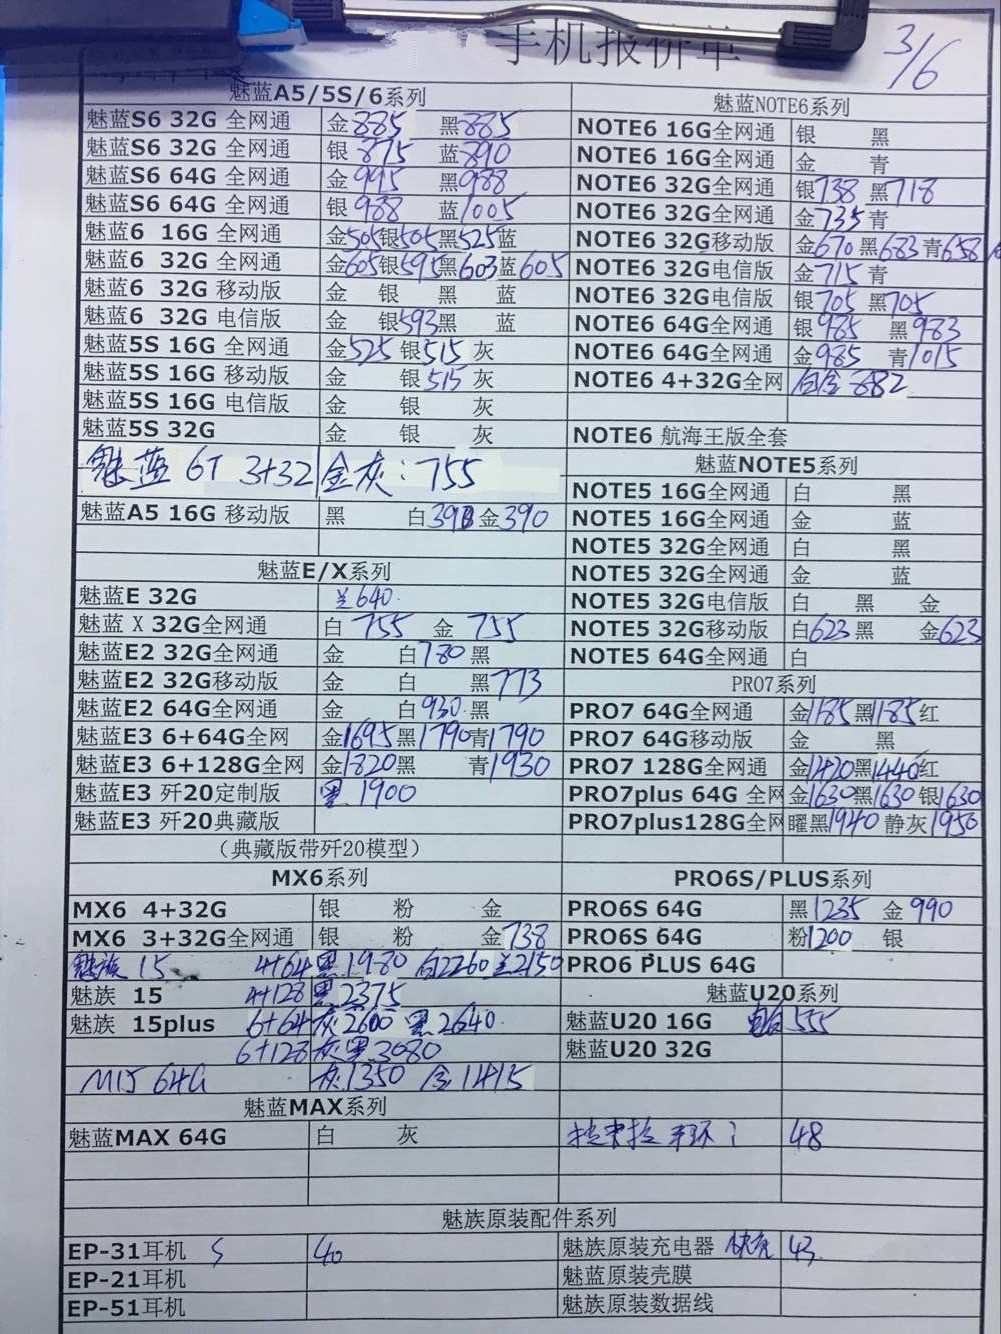 手机报价单
3/6
魅蓝A5/5S/6系列
魅蓝S6 32G 全网通 金885 黑885
魅蓝S6 32G 全网通 银875 蓝890
魅蓝S6 64G 全网通 金995 黑988
魅蓝S6 64G 全网通 银988 蓝1005
魅蓝6 16G 全网通 金505银505黑525蓝
魅蓝6 32G 全网通 金605银595黑603蓝605
魅蓝6 32G 移动版 金 银 黑 蓝
魅蓝6 32G 电信版 金 银593黑 蓝
魅蓝5S 16G 全网通 金525 银515 灰
魅蓝5S 16G 移动版 金 银515 灰
魅蓝5S 16G 电信版 金 银 灰
魅蓝5S 32G 金 银 灰
魅蓝 6T 3+32 金灰:755
魅蓝A5 16G 移动版 黑 白 金390
魅蓝E/X系列
魅蓝E 32G 兰640
魅蓝 X 32G全网通 白 755 金 755
魅蓝E2 32G全网通 金 白780黑
魅蓝E2 32G移动版 金 白 黑773
魅蓝E2 64G全网通 金 白930黑
魅蓝E3 6+64G全网 金1695黑1790青1790
魅蓝E3 6+128G全网 金1820黑 青1930
魅蓝E3 歼20定制版 黑 1900
魅蓝E3 歼20典藏版
(典藏版带歼20模型)
MX6系列
MX6 4+32G 银 粉 金
MX6 3+32G全网通 银 粉 金738
魅族 15 4+64黑1980 白2260 兰2150
魅族 15 4+128黑2375
魅族 15plus 6+64灰2600 黑2640
6+128灰黑3080
M15 64G 灰1350 金1415
魅蓝MAX系列
魅蓝MAX 64G 白 灰
魅蓝NOTE6系列
NOTE6 16G全网通 银 黑
NOTE6 16G全网通 金 青
NOTE6 32G全网通 银738 黑718
NOTE6 32G全网通 金735青
NOTE6 32G移动版 金670黑683青658
NOTE6 32G电信版 金715青
NOTE6 32G电信版 银705 黑705
NOTE6 64G全网通 银985 黑983
NOTE6 64G全网通 金985 青1015
NOTE6 4+32G全网 882
NOTE6 航海王版全套
魅蓝NOTE5系列
NOTE5 16G全网通 白 黑
NOTE5 16G全网通 金 蓝
NOTE5 32G全网通 白 黑
NOTE5 32G全网通 金 蓝
NOTE5 32G电信版 白 黑 金
NOTE5 32G移动版 白623黑 金623
NOTE5 64G全网通 白
PRO7系列
PRO7 64G全网通 金1185黑1185红
PRO7 64G移动版 金 黑
PRO7 128G全网通 金1420黑1440红
PRO7plus 64G 全网 金1630黑1630银1630
PRO7plus128G全网 曜黑1940 静灰1950
PRO6S/PLUS系列
PRO6S 64G 黑1235 金990
PRO6S 64G 粉1200 银
PRO6 PLUS 64G
魅蓝U20系列
魅蓝U20 16G 555
魅蓝U20 32G
48
魅族原装配件系列
EP-31耳机 S 40 魅族原装充电器 快充 43
EP-21耳机 魅蓝原装壳膜
EP-51耳机 魅族原装数据线